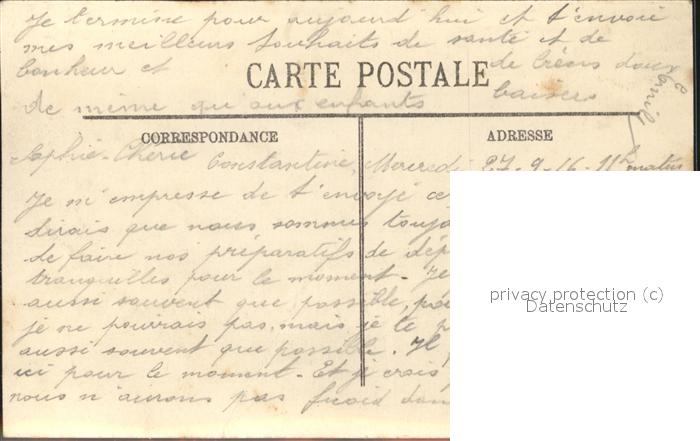 Je termine pour aujourd'hui et t'envoie
mes meilleurs souhaits de santé et de
bonheur et de bésos doux
CARTE POSTALE
de même qu'aux enfants baisers
CORRESPONDANCE
ADRESSE
Sophie Chérie Constantine, Mercredi 27-9-16-11h matin
Je m'empresse de t'envoyé
dirais que nous sommes toujo
de faire nos préparatifs de dép
tranquilles pour le moment - Je
aussi souvent que possible,
je ne pourrais pas, mais je te
aussi souvent que possible. Il
ici pour le moment - Et je crois
nous n'aurons pas froid dan
privacy protection (c)
Datenschutz